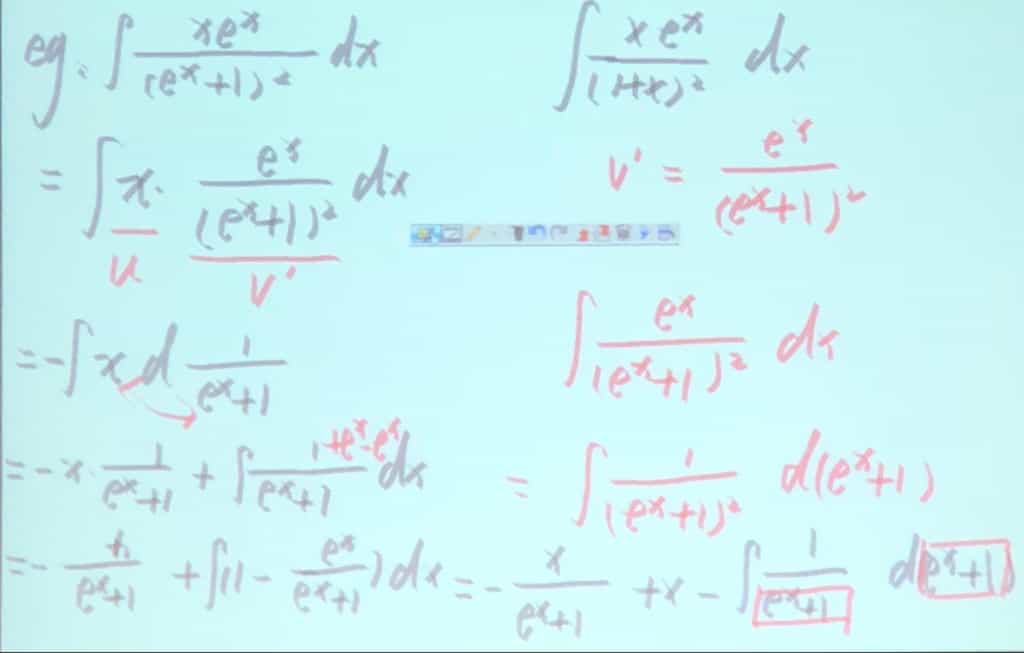 eg. ∫ xe^x/(e^x+1)² dx
= ∫ x · e^x/(e^x+1)² dx
u v'
= -∫ x d 1/(e^x+1)
= -x · 1/(e^x+1) + ∫ (1+e^x-e^x)/(e^x+1) dx
= - x/(e^x+1) + ∫(1 - e^x/(e^x+1)) dx = - x/(e^x+1) + x - ∫ 1/(e^x+1) d(e^x+1)
∫ xe^x/(1+x)² dx
v' = e^x/(e^x+1)²
∫ e^x/(e^x+1)² dx
= ∫ 1/(e^x+1)² d(e^x+1)